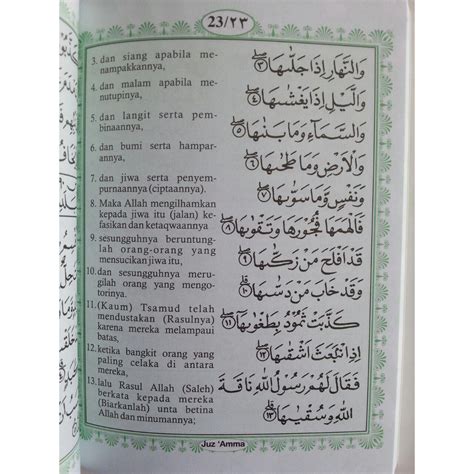 23/٢٣
3. dan siang apabila me-
nampakkannya,
4. dan malam apabila me-
nutupinya,
5. dan langit serta pem-
binaannya,
6. dan bumi serta hampar-
annya,
7. dan jiwa serta penyem-
purnaannya (ciptaannya).
8. Maka Allah mengilhamkan
kepada jiwa itu (jalan) ke-
fasikan dan ketaqwaannya
9. sesungguhnya beruntung-
lah orang-orang yang
mensucikan jiwa itu,
10. dan sesungguhnya merugi-
lah orang yang mengo-
torinya.
11. (Kaum) Tsamud telah
mendustakan (Rasulnya)
karena mereka melampaui
batas,
12. ketika bangkit orang yang
paling celaka di antara
mereka,
13. lalu Rasul Allah (Saleh)
berkata kepada mereka
(Biarkanlah) unta betina
Allah dan minumannya;
وَالنَّهَارِ إِذَا جَلّٰىهَا ۝٣
وَالَّيْلِ إِذَا يَغْشٰىهَا ۝٤
وَالسَّمَآءِ وَمَا بَنٰىهَا ۝٥
وَالْاَرْضِ وَمَا طَحٰىهَا ۝٦
وَنَفْسٍ وَّمَا سَوّٰىهَا ۝٧
فَاَلْهَمَهَا فُجُوْرَهَا وَتَقْوٰىهَا ۝٨
قَدْ اَفْلَحَ مَنْ زَكّٰىهَا ۝٩
وَقَدْ خَابَ مَنْ دَسّٰىهَا ۝١٠
كَذَّبَتْ ثَمُوْدُ بِطَغْوٰىهَا ۝١١
اِذِ انْۢبَعَثَ اَشْقٰىهَا ۝١٢
فَقَالَ لَهُمْ رَسُوْلُ اللّٰهِ نَاقَةَ
اللّٰهِ وَسُقْيٰهَا ۝١٣
Juz 'Amma